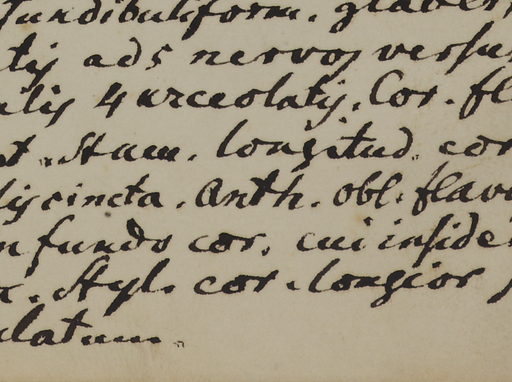 fundibuliform. glaber
tis ads nervos versu
alis 4 urceolatis. Cor. fl
t. Stam. longitud. cor
discincta. Anth. obl. flav
n fundo cor. cui inside
Styl. cor. longior
ulatum.